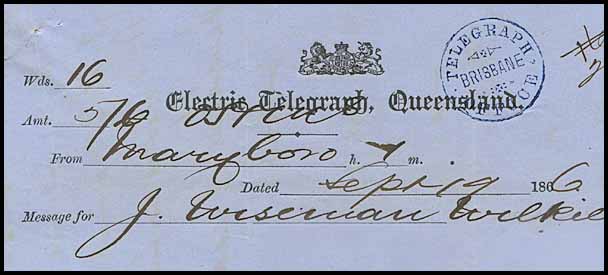 TELEGRAPH OFFICE
BRISBANE
Wds. 16
Electric Telegraph, Queensland.
Amt. 5/6
From Maryboro h. m.
Dated Sept 19 1866
Message for J. Wiseman Wilkie